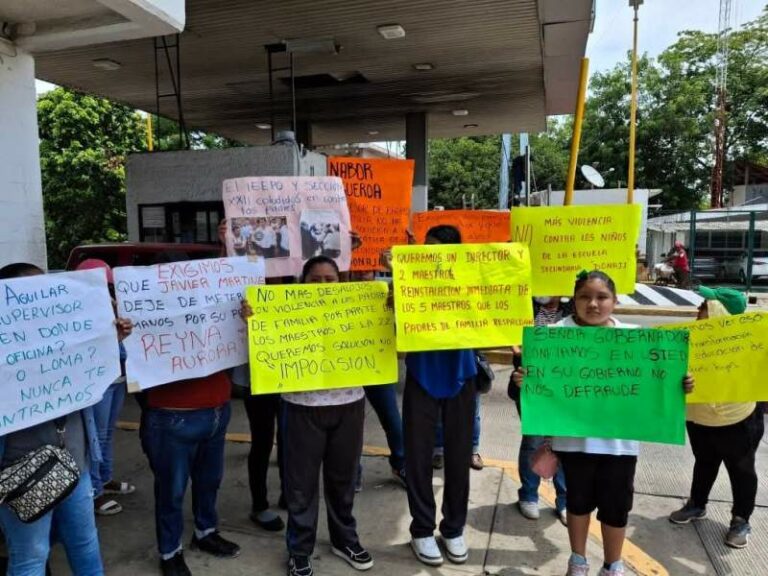 AGUILAR
SUPERVISOR
EN DONDE
OFICINA?
O LOMA?
NUNCA TE
ENTRAMOS
EXIGIMOS
QUE JAVIER MARTINE
DEJE DE METER
MANOS POR SU
REYNA
AURORA
EL IEEPO Y SECCION
XXII COLUDIDOS EN CONTRA
LOS PADRES
NO MAS
CON VIOLENCIA A LOS PADRES
DE FAMILIA POR PARTE
LOS MAESTROS DE LA 22
QUEREMOS SOLUCION NO
IMPOCISION
NABOR
QUEREMOS UN DIRECTOR Y
2 MAESTROS
REINSTALACION INMEDIATA DE
LOS 5 MAESTROS QUE LOS
PADRES DE FAMILIA RESPALDAN
NO
MÁS VIOLENCIA
CONTRA LES NIÑOS
DE LA ESCUELA
SECUNDARIA DONAJI
SEÑOR GOBERNADOR
CONFIAMOS EN USTED
EN SU GOBIERNO NO
NOS DEFRAUDE
VEROSO
EDUCACIÓN DE